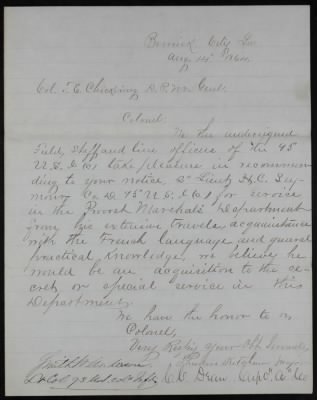 City La.
Aug 14th 1864
Col. T. E. D. P. M. Genl.
Colonel:
We the undersigned
Field, Staff and Line officers of the 95
U.S. take pleasure in recommen-
ding to your notice, 2d Lieut. H. C. Sey-
mour Co D. U.S. for service
in the Provost Marshal's Department
from his extensive travels, acquaintance
with the French language, and general
practical knowledge, we believe he
would be an acquisition to the se-
cret or special service in this
Department.
We have the honor to be
Colonel,
Very Respy your Obt Servants,
Lt Col
C. C. Dean Capt "A" Co